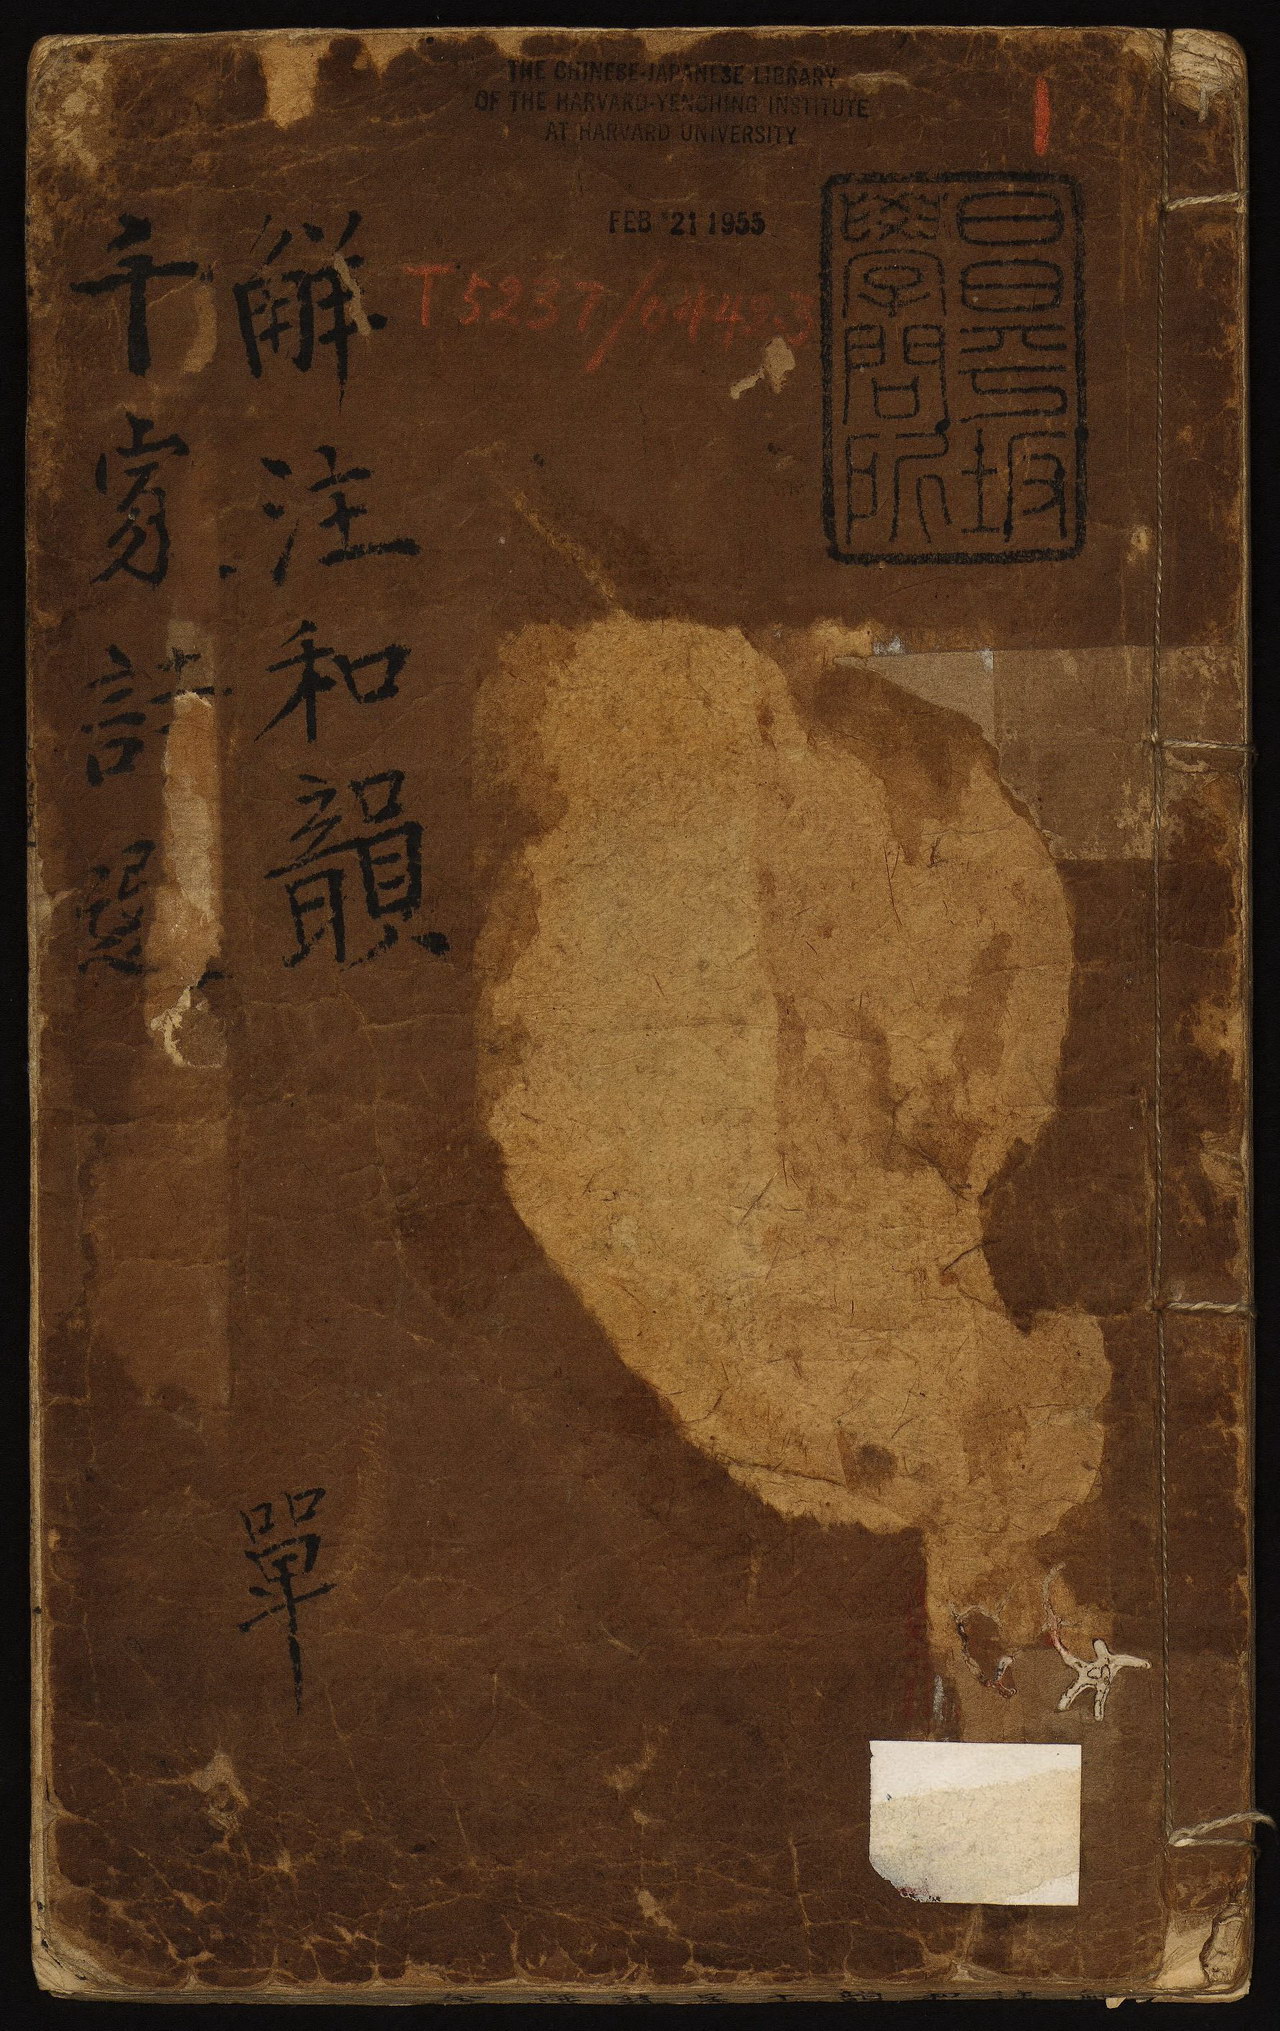 THE CHINESE-JAPANESE LIBRARY
OF THE HARVARD-YENCHING INSTITUTE
AT HARVARD UNIVERSITY
FEB 21 1955
T 5237/
昌平坂
學問所
觧注和韻
千家詩選
單